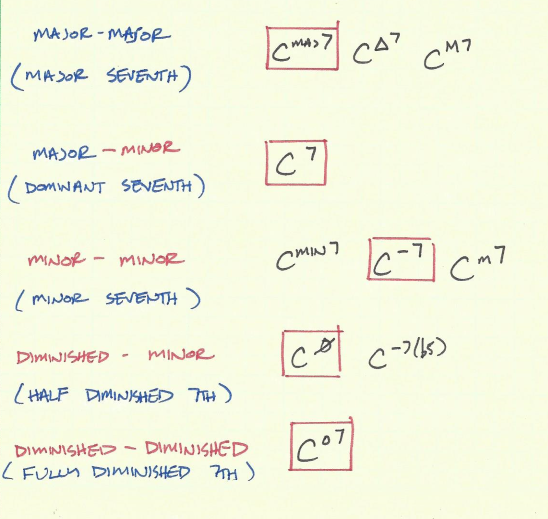 MAJOR - MAJOR
(MAJOR SEVENTH)
C MAJ7 C Δ7 C M7
MAJOR - MINOR
(DOMINANT SEVENTH)
C 7
MINOR - MINOR
(MINOR SEVENTH)
C MIN7 C -7 C m7
DIMINISHED - MINOR
(HALF DIMINISHED 7TH)
C ø C -7(b5)
DIMINISHED - DIMINISHED
(FULLY DIMINISHED 7TH)
C o7